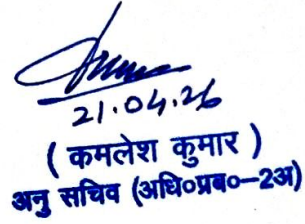 21.04.26
( कमलेश कुमार )
अनु सचिव (अधि०प्रब०-2अ)